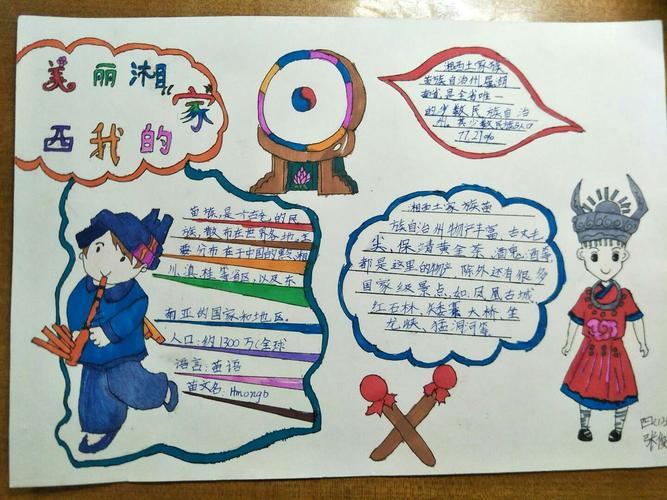 美丽湘
西我的家
湘西土家族
苗族自治州是湖
南也是全省唯一
的少数民族自治
州,其少数民族占人口
77.21%
苗族,是一个古老的民
族,散布在世界各地,主
要分布在于中国的黔、湘
川、滇、桂等省区,以及东
南亚的国家和地区。
人口:约1300万(全球
语言:苗语
苗文名:Hmongb
湘西土家族苗
族自治州物产丰富,古丈毛
尖、保靖黄金茶、酒鬼酒等
都是这里的物产,除外还有很多
国家级景点,如:凤凰古城
红石林、矮寨大桥、坐
龙峡、猛洞河等